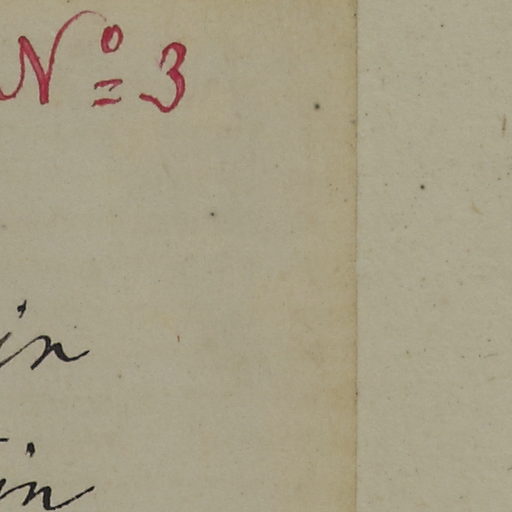 Nº 3
in
in